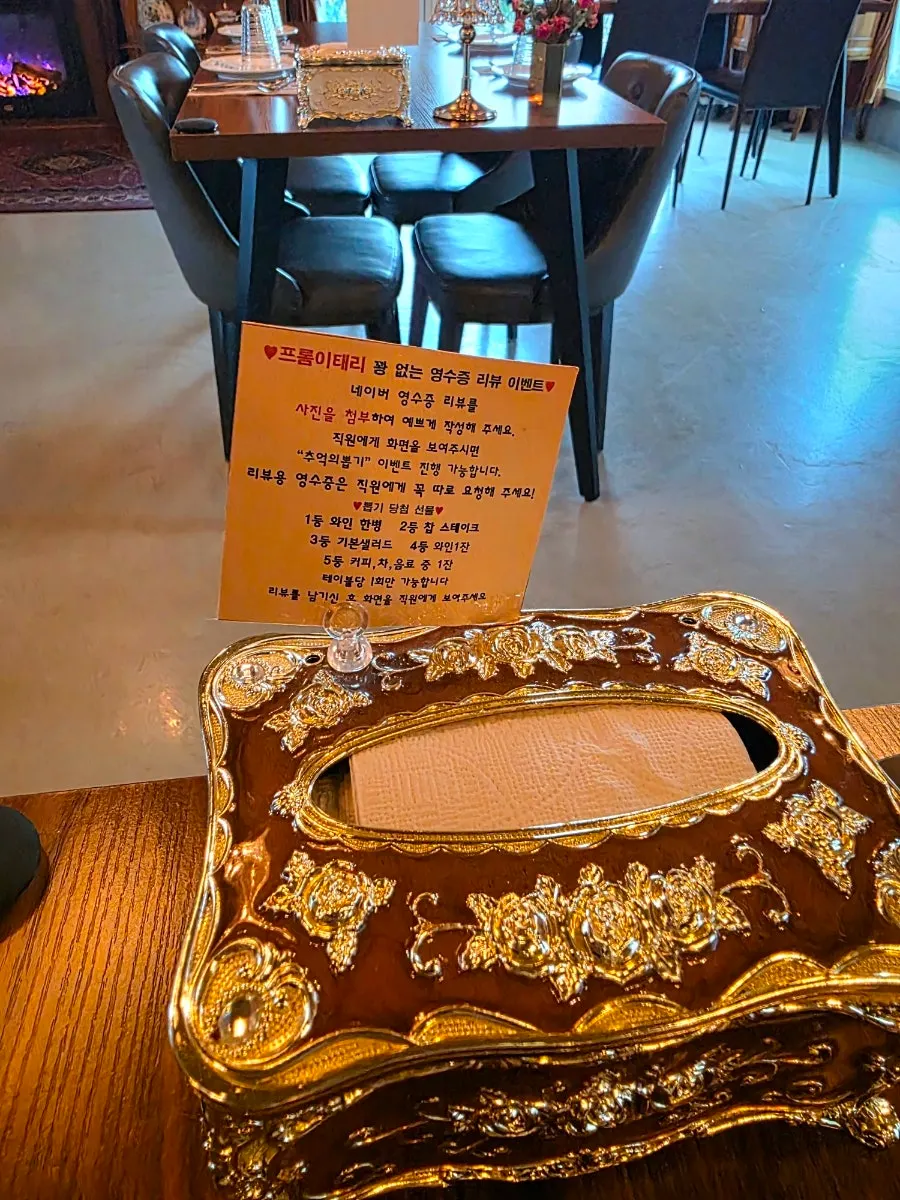 ♥프롬이태리 꽝 없는 영수증 리뷰 이벤트♥
네이버 영수증 리뷰를
사진을 첨부하여 예쁘게 작성해 주세요.
직원에게 화면을 보여주시면
"추억의뽑기" 이벤트 진행 가능합니다.
리뷰용 영수증은 직원에게 꼭 따로 요청해 주세요!
♥뽑기 당첨 선물♥
1등 와인 한병 2등 찹 스테이크
3등 기본샐러드 4등 와인1잔
5등 커피,차,음료 중 1잔
테이블당 1회만 가능합니다
리뷰를 남기신 후 화면을 직원에게 보여주세요